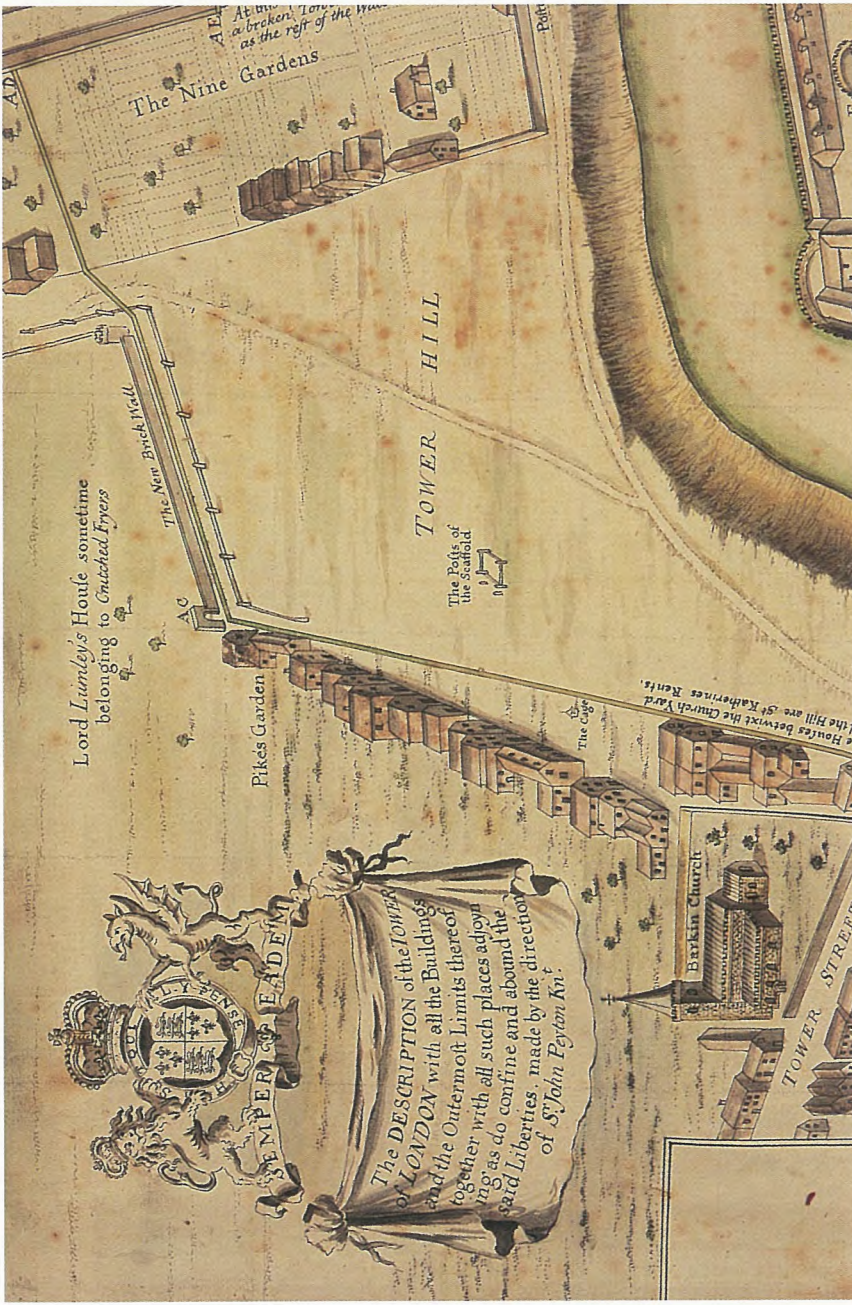 AD
AE
At this
a broken Tow
as the rest of the Wall
The Nine Gardens
Post
Lord Lumley's House sometime
belonging to Crutched Fryers
The New Brick Wall
AC
Pikes Garden
TOWER HILL
The Posts of
the Scaffold
The Cage
Houses betwixt the Church Yard
the Hill are St Katherines Rents.
Barkin Church
TOWER STREET
QUI MAL Y PENSE
SEMPER EADEM
The DESCRIPTION of the TOWER
of LONDON with all the Buildings
and the Outermost Limits thereof
together with all such places adjoyn
ing as do confine and abound the
said Liberties, made by the direction
of Sr. John Peyton Knt.